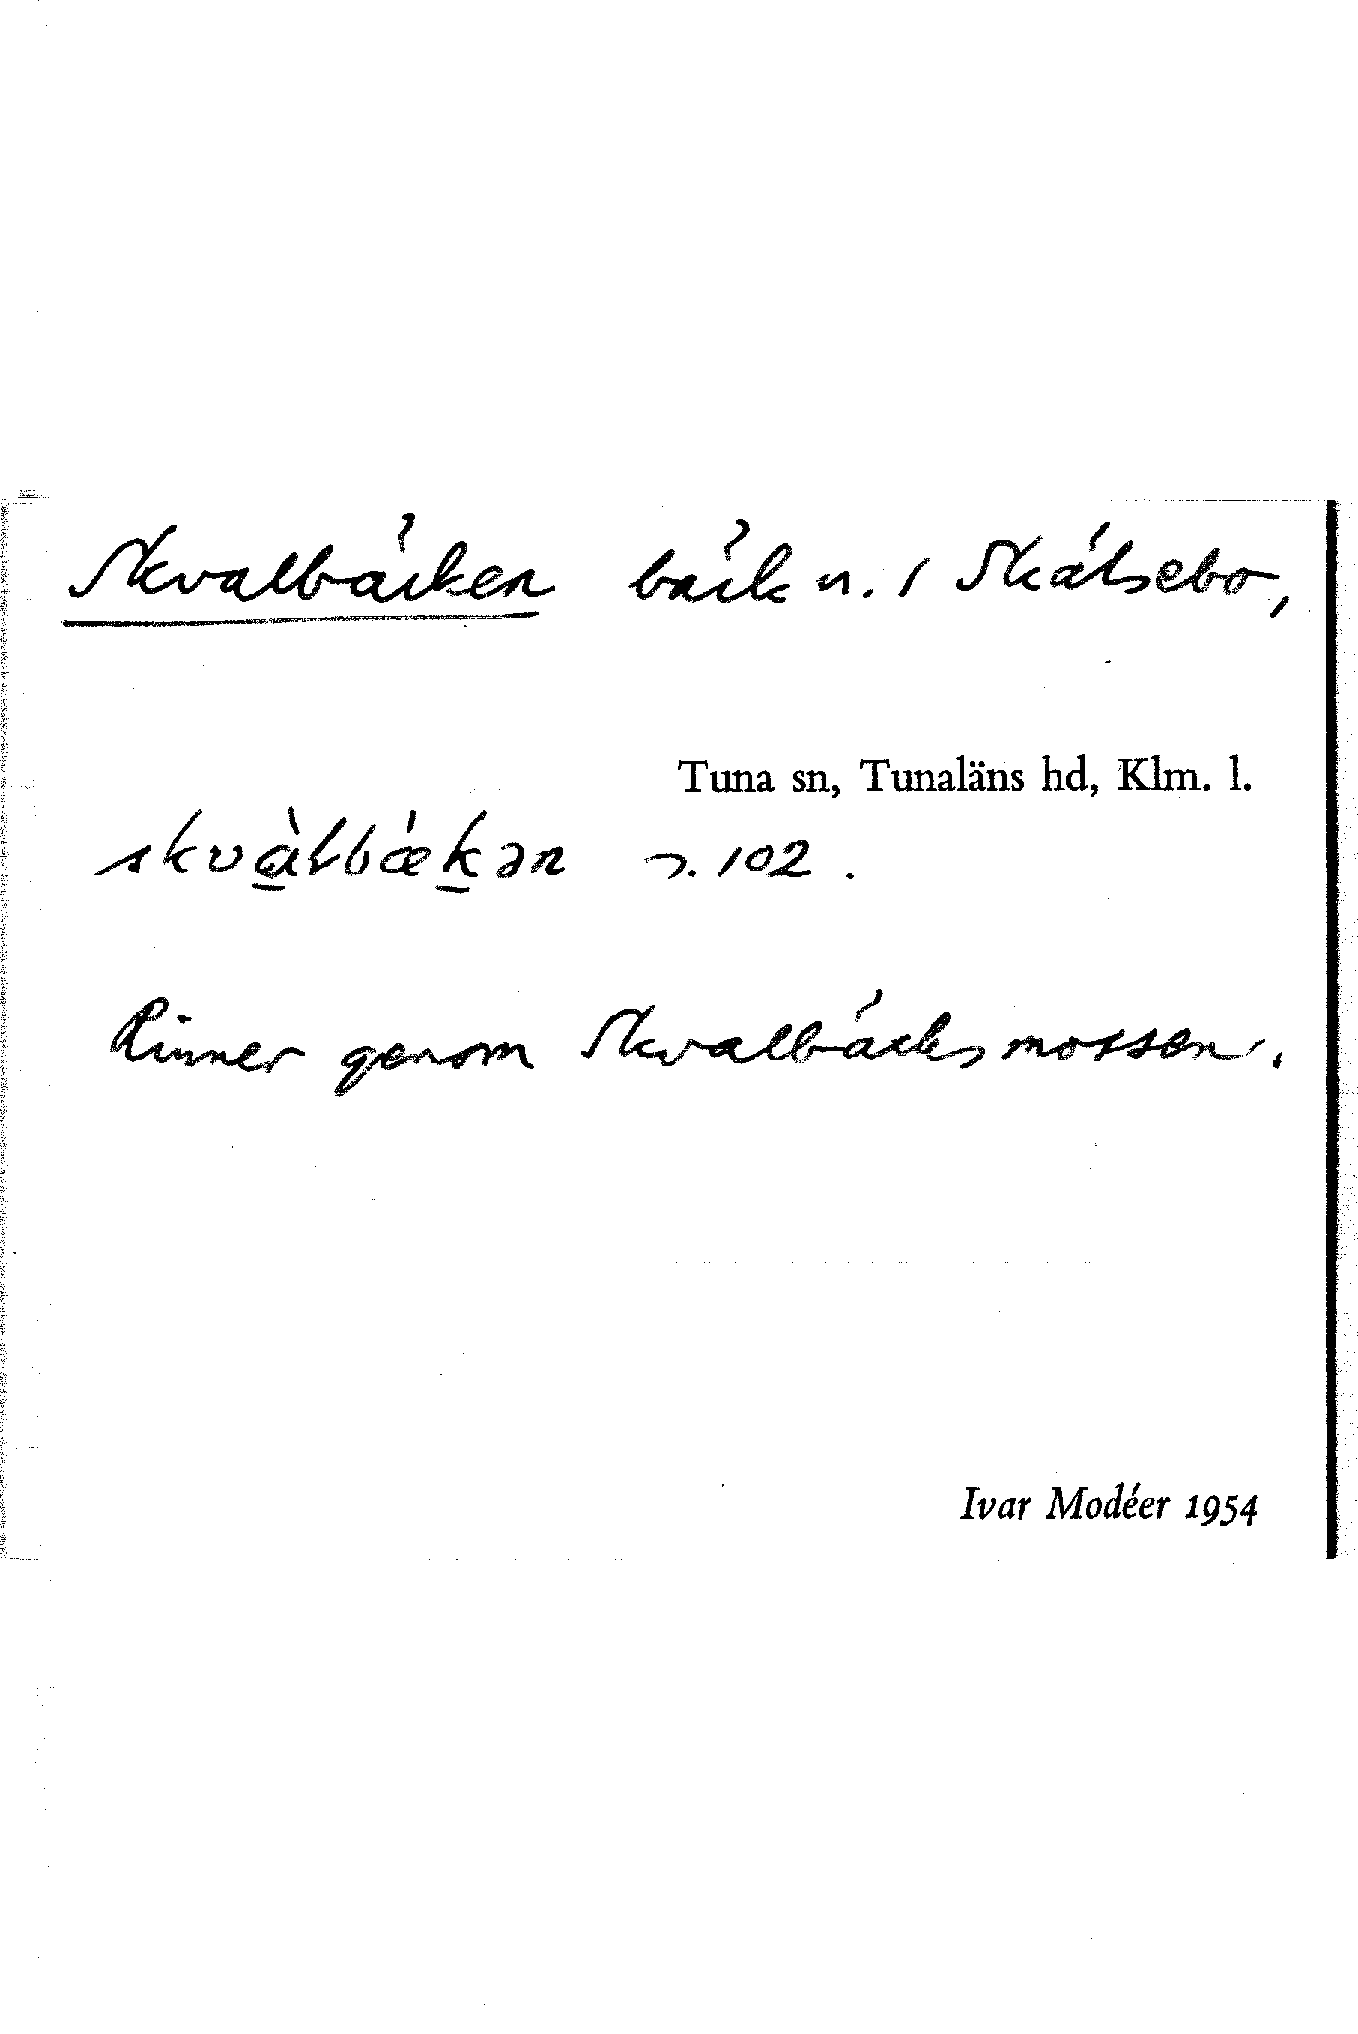 Skvalbäcken bäck n. / Skälsebo,
Tuna sn, Tunaläns hd, Klm. l.
skvàlbækən 102.
Rinner genom Skvalbäcksmossen.
Ivar Modéer 1954